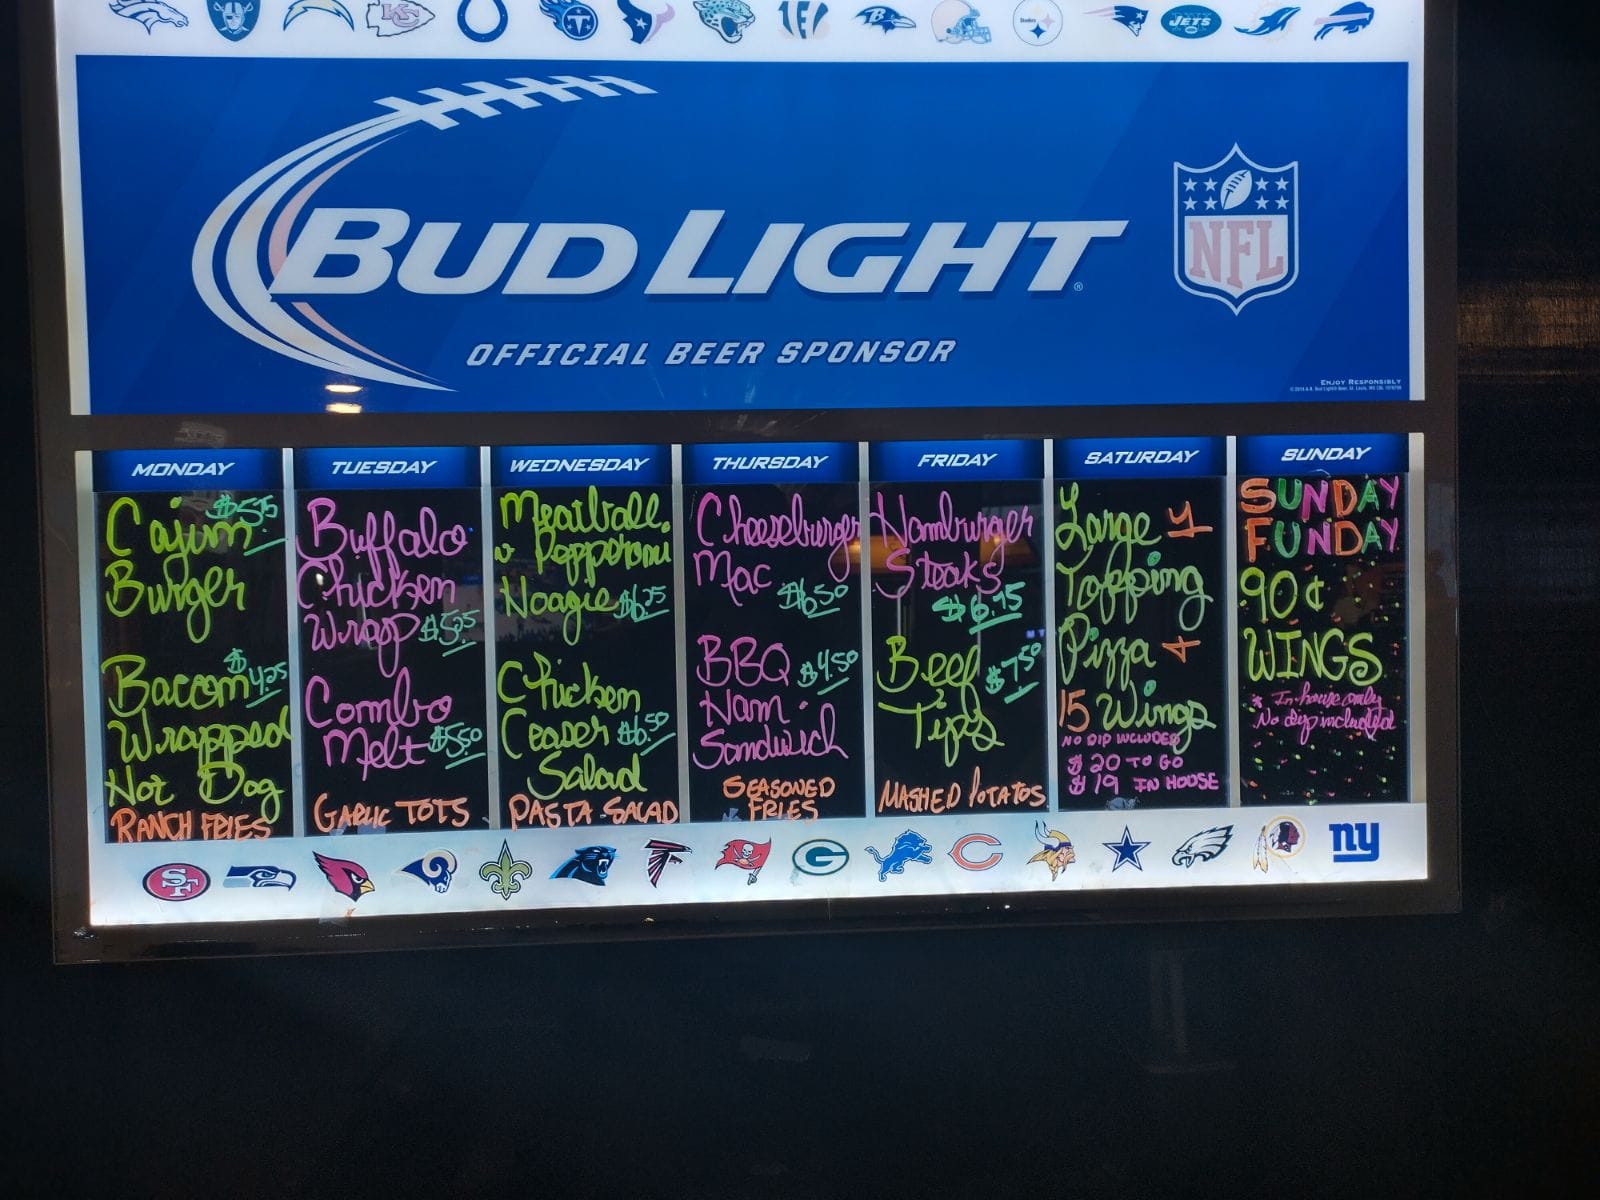 KC
TEXANS
BEN
Steelers
JETS
BUD LIGHT®
NFL
OFFICIAL BEER SPONSOR
ENJOY RESPONSIBLY
MONDAY
Cajun $5.75
Burger
Bacon $4.25
Wrapped
Hot Dog
RANCH FRIES
TUESDAY
Buffalo
Chicken
Wrap $5.25
Combo
Melt $5.50
GARLIC TOTS
WEDNESDAY
Meatball
n Pepperoni
Hoagie $6.25
Chicken
Ceaser $6.50
Salad
PASTA SALAD
THURSDAY
Cheeseburger
Mac $6.50
BBQ $4.50
Ham
Sandwich
SEASONED
FRIES
FRIDAY
Hamburger
Steaks
$6.75
Beef $7.50
Tips
MASHED POTATOS
SATURDAY
Large 1
Topping
Pizza +
15 Wings
NO DIP INCLUDED
$20 TO GO
$19 IN HOUSE
SUNDAY
SUNDAY
FUNDAY
90¢
WINGS
* In house only
No dip included
SF
G
C
ny